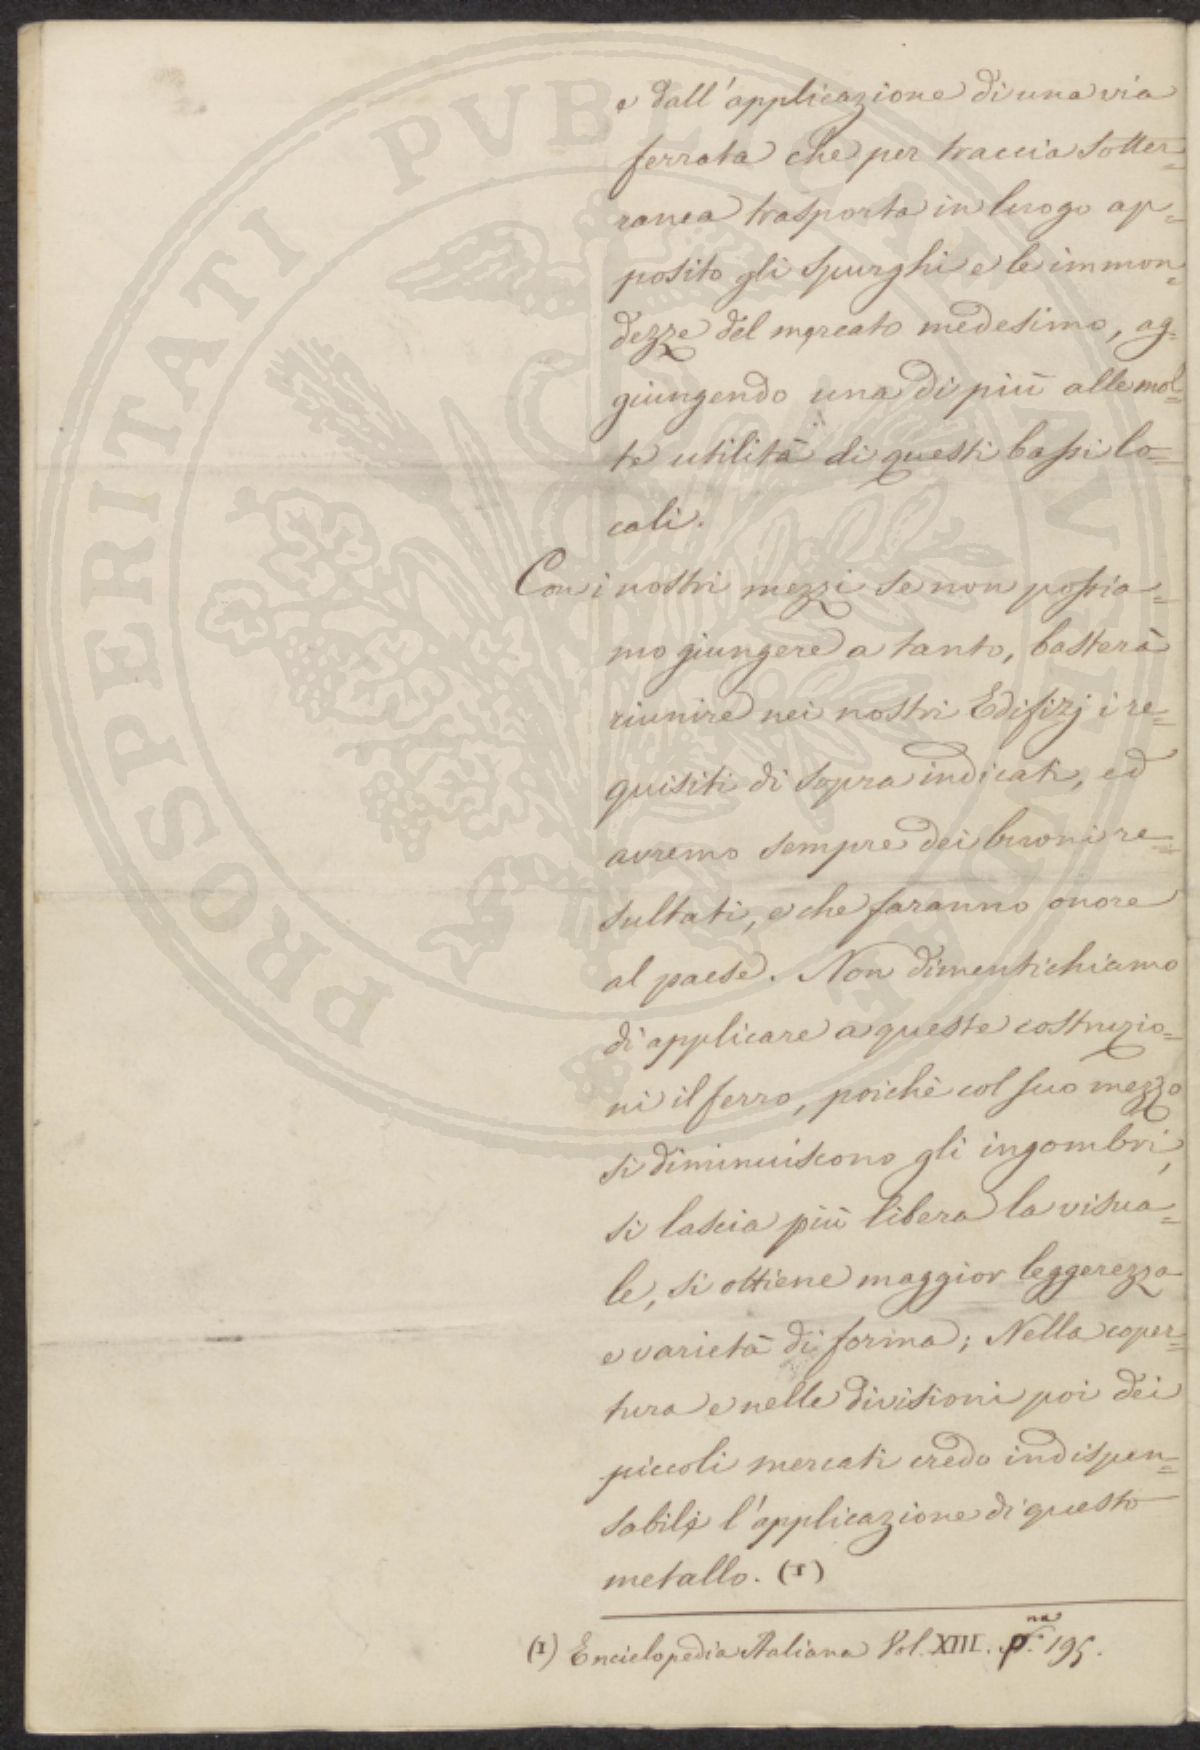 e dall'applicazione di una via
ferrata che per traccia sotter=
ranea trasporta in luogo ap=
posito gli spurghi e le immon=
dezze del mercato medesimo, ag=
giungendo una di più alle mol=
te utilità di questi bassi lo=
cali.
Con i nostri mezzi se non possia=
mo giungere a tanto, basterà
riunire nei nostri Edifizj i re=
quisiti di sopra indicati, ed
avremo sempre dei buoni re=
sultati, e che faranno onore
al paese. Non dimentichiamo
di applicare a queste costruzio=
ni il ferro, poichè col suo mezzo
si diminuiscono gli ingombri,
si lascia più libera la visua=
le, si ottiene maggior leggerezza
e varietà di forma; Nella coper=
tura e nelle divisioni poi dei
piccoli mercati credo indispen=
sabile l'applicazione di questo
metallo. (1)
(1) Enciclopedia Italiana Vol. XIII. p.na 195.
PROSPERITATI PVBLICAE AVGENDAE